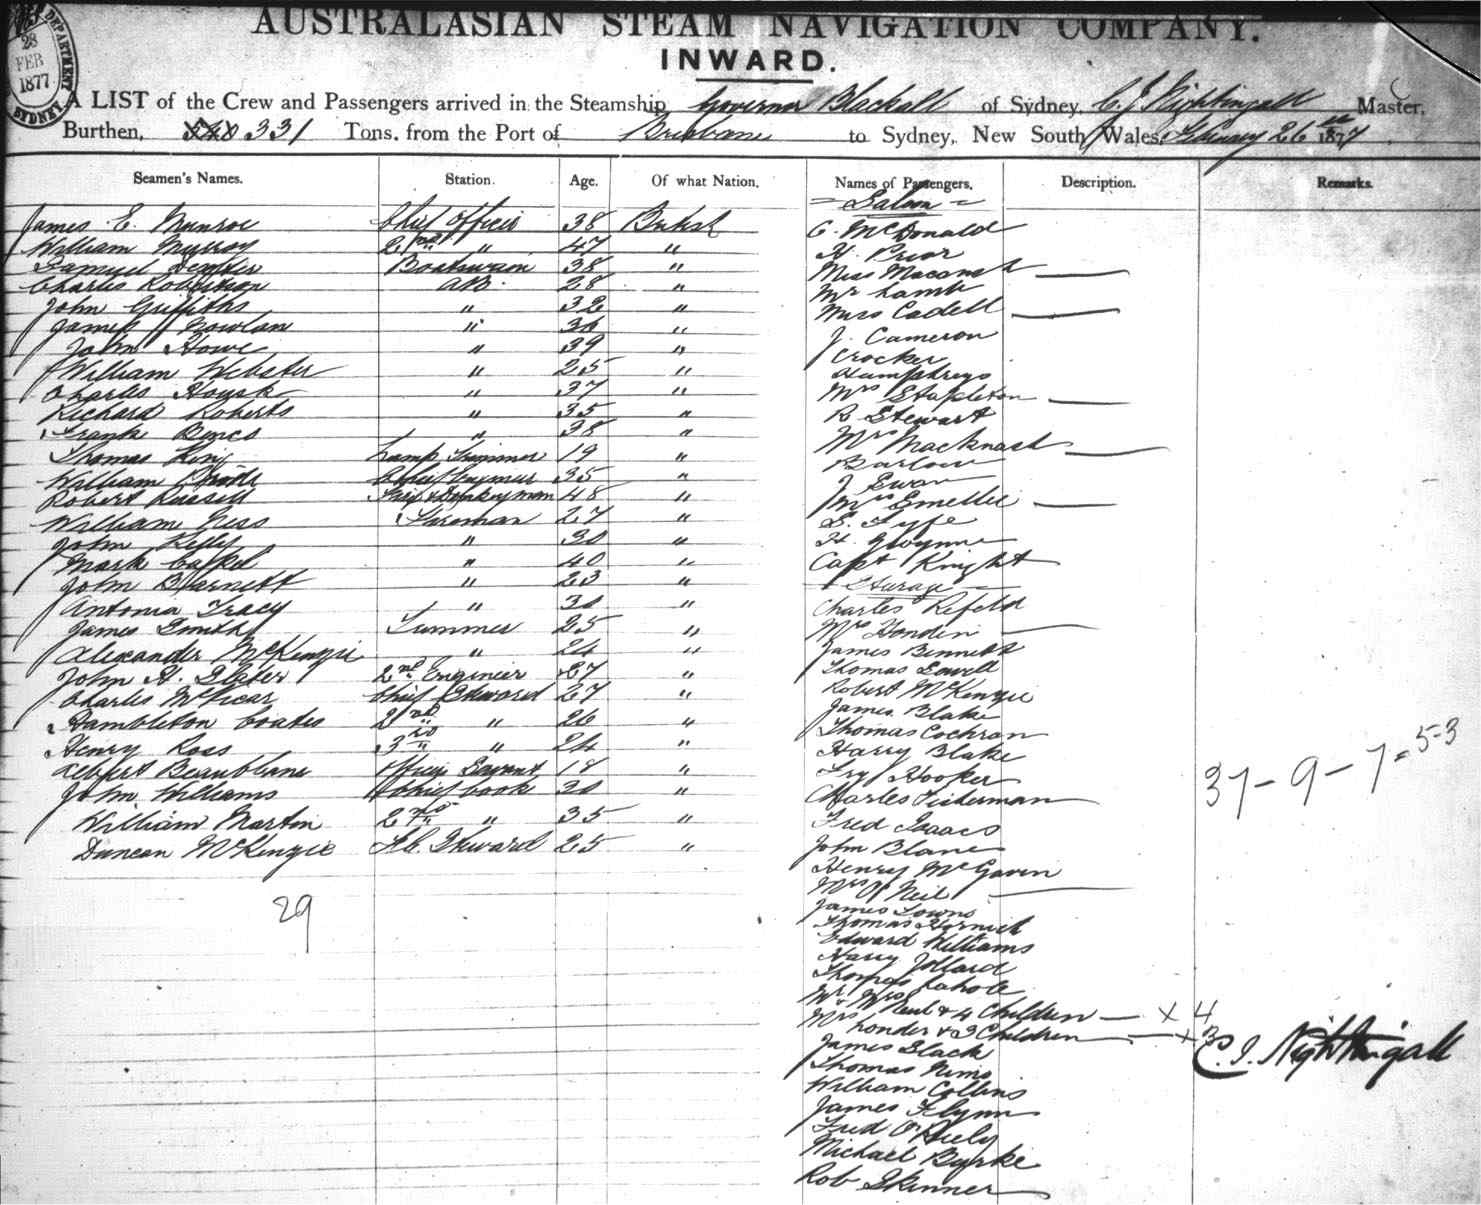 AUSTRALASIAN STEAM NAVIGATION COMPANY.
INWARD.
28
FEB
1877
DEPARTMENT
SYDNEY
A LIST of the Crew and Passengers arrived in the Steamship Governor Blackall of Sydney, C J Nightingall Master,
Burthen, 331 Tons, from the Port of Brisbane to Sydney, New South Wales, February 26th 1877
Seamen's Names. Station. Age. Of what Nation. Names of Passengers. Description. Remarks.
= Saloon =
James E. Munroe Chief Officer 38 British C. McDonald
William Murray 2nd " 47 " H. Prior
Samuel Boatswain 38 " Miss
Charles Robertson AB. 28 " Mr Lamb
John Griffiths " 32 " Miss Cadell
James Nowlan " " J. Cameron
John Howe " 39 " Crocker
William Webster " 25 " Humphreys
Charles " 37 " Mrs Stapleton
Richard Roberts " 35 " R. Stewart
Frank " 38 " Mrs Macknash
Thomas King Lamp Trimmer 19 " Barlow
William Chief Engineer 35 " J Ewan
Robert Russell & Donkeyman 48 " Mrs
William Fireman 27 " S. Fyfe
John Kelly " 30 " H. Gwynne
Mark " 40 " Capt Knight
John Barnett " 23 " Sturage
Antonia Tracy " 30 " Charles Refeld
James Smith Trimmer 25 " Mrs
Alexander McKenzie " 24 " James Bennett
John A. Slater 2nd Engineer 27 " Thomas
Charles McVicar Chief Steward 27 " Robert McKenzie
Hambleton Coates 2nd " 26 " James Blake
Henry Ross 3rd " 24 " Thomas Cochran
Albert Officers Servant 18 " Harry Blake
John Williams Chief Cook 30 " Hooker
William Martin 2nd " 35 " Charles Fisherman
Duncan McKenzie F.C. Steward 25 " Fred Isaacs
John Blane
29
Henry McGavin
Mrs O'Neil
James
Thomas Hornick
Edward Williams
Harry Jollard
Thomas
Mr & Mrs & 4 Children — x 4
Mrs & 3 Children — x 3
James Black
Thomas Nims
William Collins
James Flynn
Fred
Michael Byrke
Rob Skinner
37 - 9 - 7 = 53
C. J. Nightingall